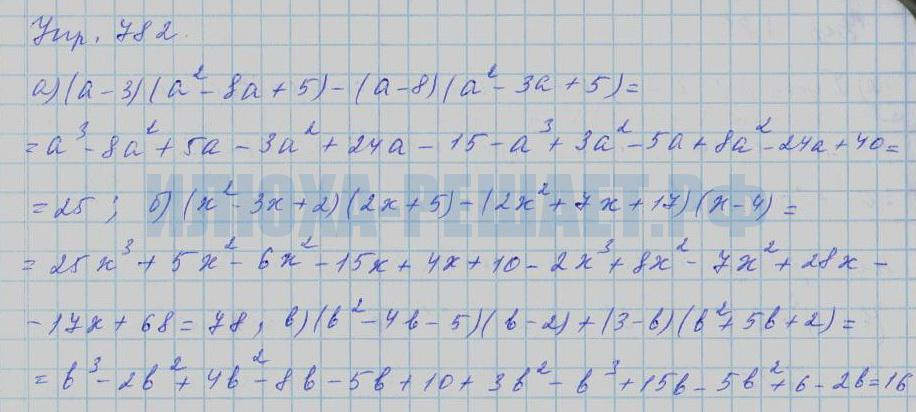 Упр. 782.
а) (a-3)(a²-8a+5)-(a-8)(a²-3a+5)=
=a³-8a²+5a-3a²+24a-15-a³+3a²-5a+8a²-24a+40=
=25; б) (x²-3x+2)(2x+5)-(2x²+7x+17)(x-4)=
ИЛЮХА-РЕШАЕТ.РФ
=25x³+5x²-6x²-15x+4x+10-2x³+8x²-7x²+28x-
-17x+68=78; в) (b²-4b-5)(b-2)+(3-b)(b²+5b+2)=
=b³-2b²+4b²-8b-5b+10+3b²-b³+15b-5b²+6-2b=16